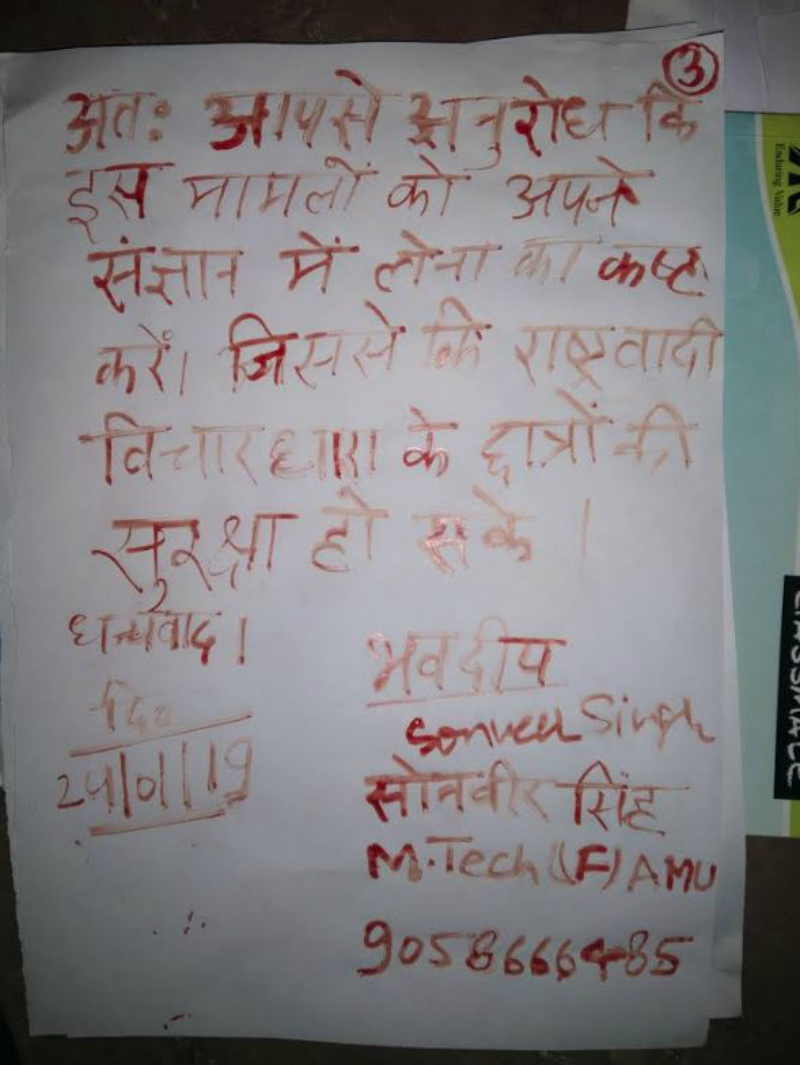 3
अतः आपसे अनुरोध कि
इस मामलों को अपने
संज्ञान में लेना का कष्ट
करें। जिससे कि राष्ट्रवादी
विचारधारा के छात्रों की
सुरक्षा हो सके ।
धन्यवाद ।
भवदीय
दि०
Sonveer Singh
24/01/19
सोनवीर सिंह
M.Tech (F) AMU
9058666485
Enduring Value
CLASSMATE